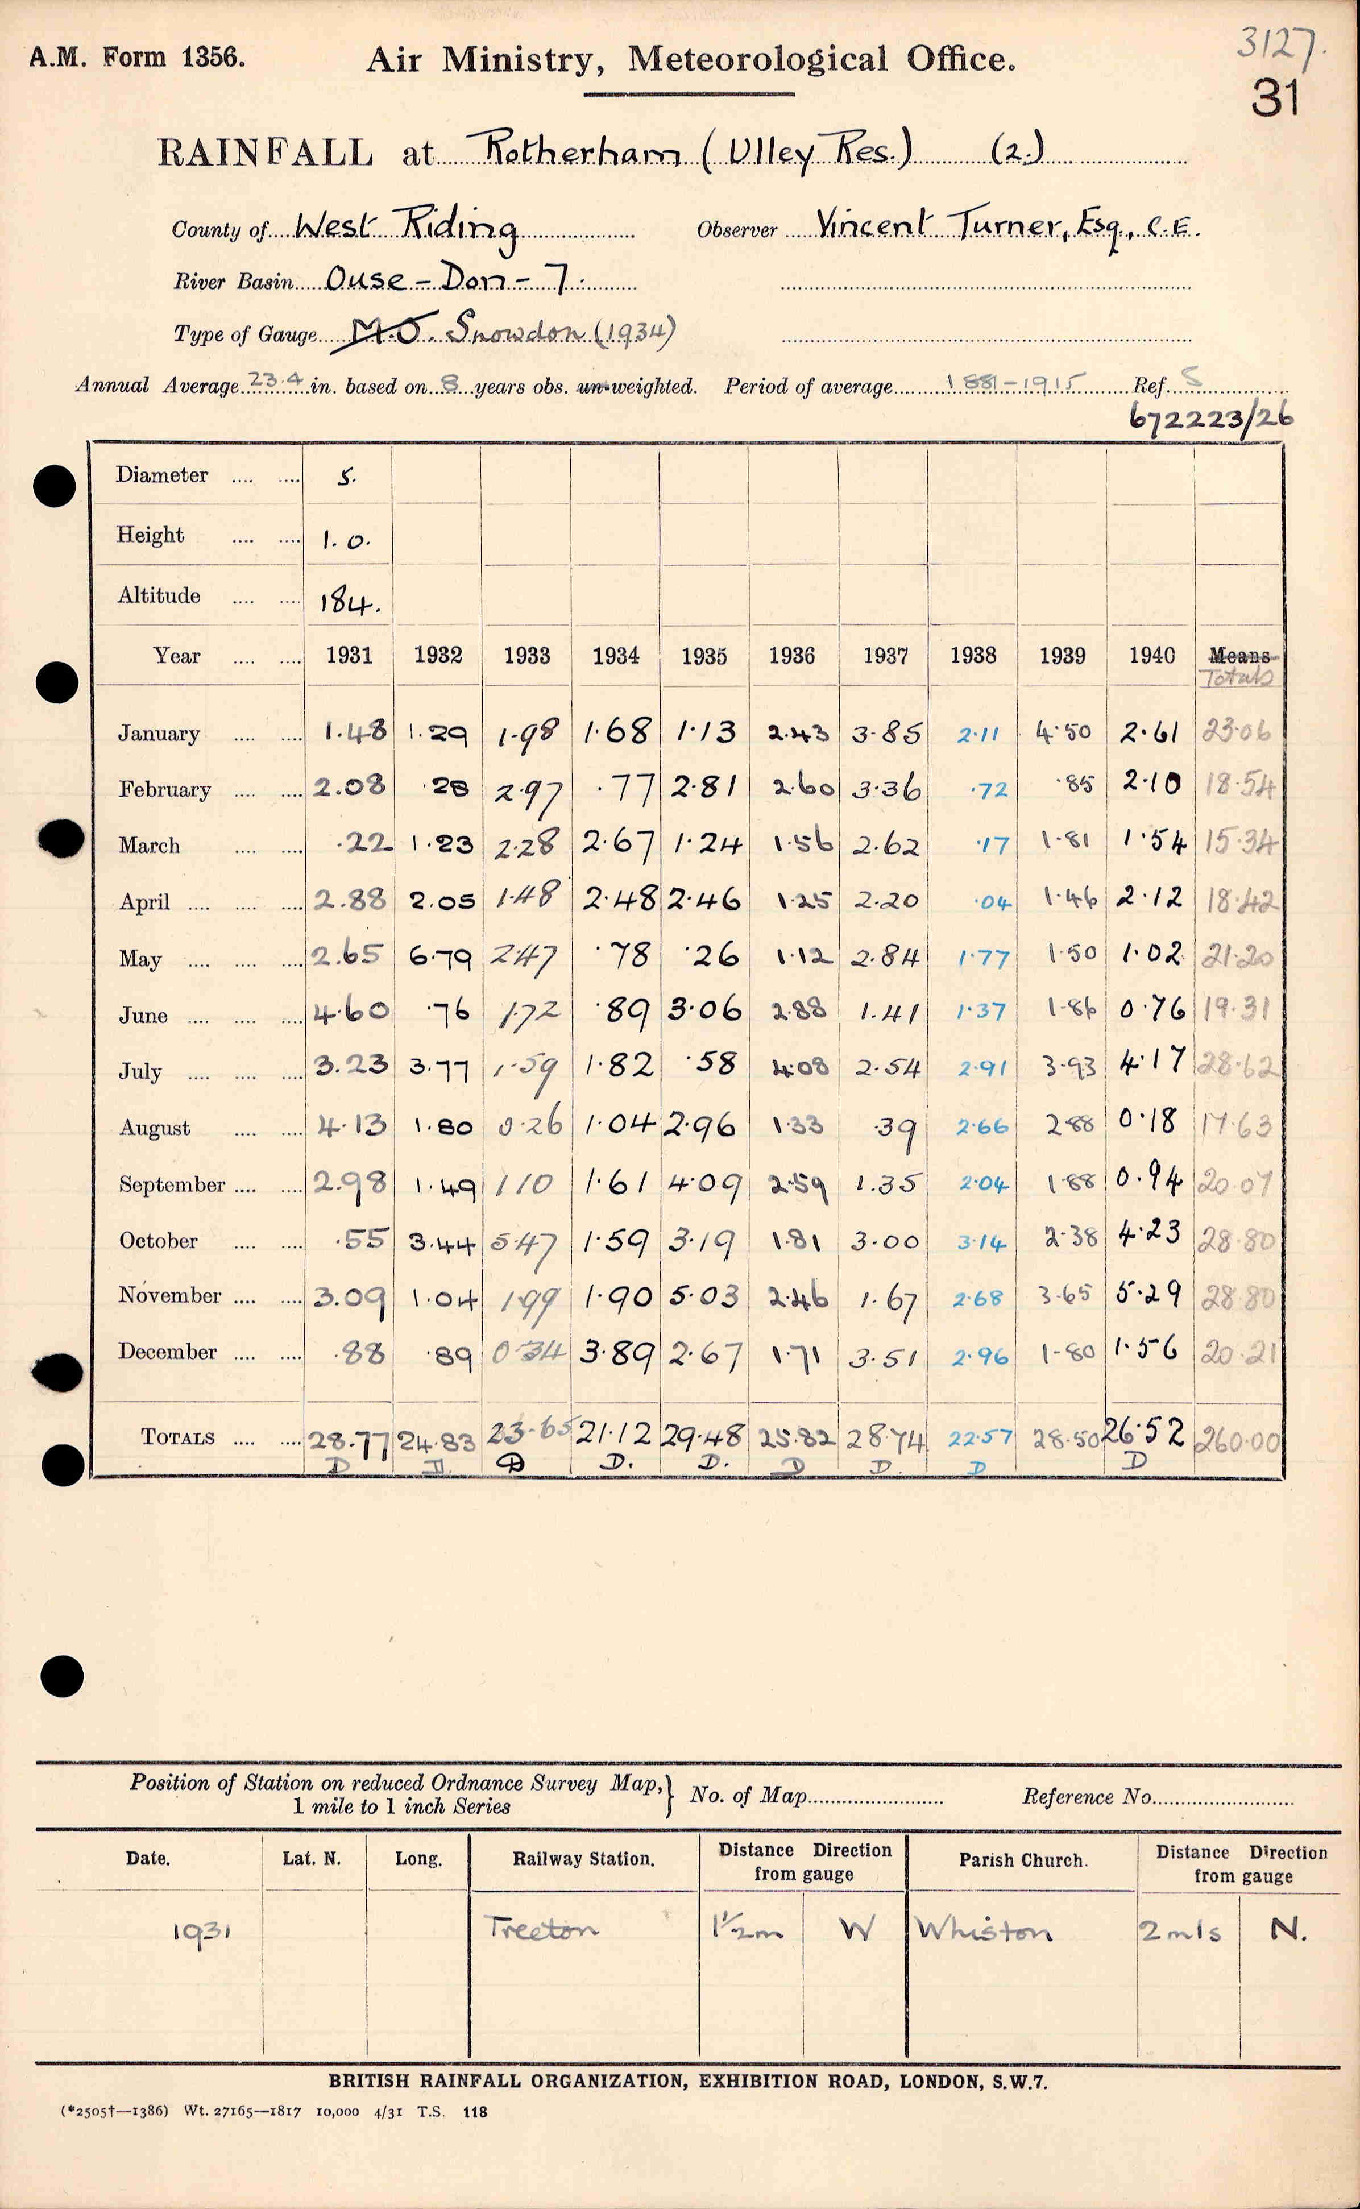 3127.
A.M. Form 1356. Air Ministry, Meteorological Office.
31
RAINFALL at Rotherham (Ulley Res.) (2.)
County of West Riding Observer Vincent Turner, Esq., C.E.
River Basin Ouse - Don - 7.
Type of Gauge M.O. Snowdon (1934)
Annual Average 23.4 in. based on 8 years obs. un-weighted. Period of average 1881-1915 Ref. S
672223/26
Diameter .... .... 5.
Height .... .... 1.0.
Altitude .... .... 184.
Year .... .... 1931 1932 1933 1934 1935 1936 1937 1938 1939 1940 Means
Totals
January .... .... 1.48 1.29 1.98 1.68 1.13 2.43 3.85 2.11 4.50 2.61 23.06
February .... .... 2.08 .28 2.97 .77 2.81 2.60 3.36 .72 .85 2.10 18.54
March .... .... .22 1.23 2.28 2.67 1.24 1.56 2.62 .17 1.81 1.54 15.34
April .... .... .... 2.88 2.05 1.48 2.48 2.46 1.25 2.20 .04 1.46 2.12 18.42
May .... .... .... 2.65 6.79 2.47 .78 .26 1.12 2.84 1.77 1.50 1.02 21.20
June .... .... .... 4.60 .76 1.72 .89 3.06 2.88 1.41 1.37 1.86 0.76 19.31
July .... .... .... 3.23 3.77 1.59 1.82 .58 4.08 2.54 2.91 3.93 4.17 28.62
August .... .... 4.13 1.80 0.26 1.04 2.96 1.33 .39 2.66 2.88 0.18 17.63
September .... .... 2.98 1.49 1.10 1.61 4.09 2.59 1.35 2.04 1.88 0.94 20.07
October .... .... .55 3.44 5.47 1.59 3.19 1.81 3.00 3.14 2.38 4.23 28.80
November .... .... 3.09 1.04 1.99 1.90 5.03 2.46 1.67 2.68 3.65 5.29 28.80
December .... .... .88 .89 0.34 3.89 2.67 1.71 3.51 2.96 1.80 1.56 20.21
TOTALS .... .... 28.77 24.83 23.65 21.12 29.48 25.82 28.74 22.57 28.50 26.52 260.00
D D. D D. D. D D. D D
Position of Station on reduced Ordnance Survey Map, } No. of Map Reference No.
1 mile to 1 inch Series
Date. Lat. N. Long. Railway Station. Distance Direction from gauge Parish Church. Distance Direction from gauge
1931 Treeton 1½m W Whiston 2 mls N.
BRITISH RAINFALL ORGANIZATION, EXHIBITION ROAD, LONDON, S.W.7.
(*2505†—1386) Wt. 27165—1817 10,000 4/31 T.S. 118